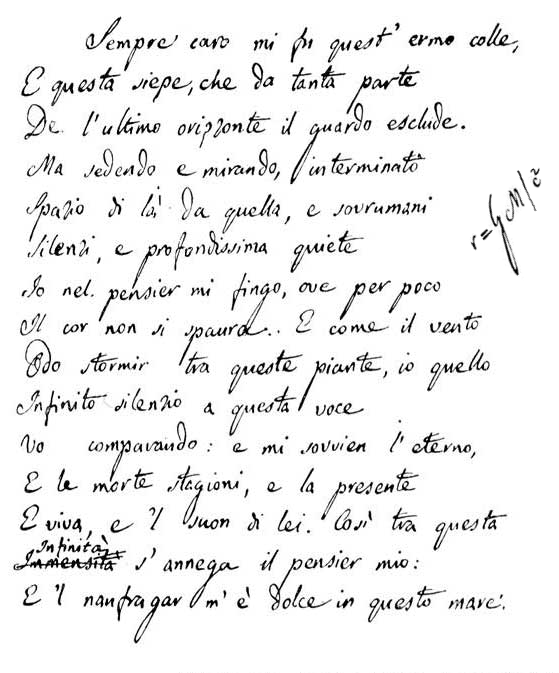 Sempre caro mi fu quest' ermo colle,
E questa siepe, che da tanta parte
De l'ultimo orizzonte il guardo esclude.
Ma sedendo e mirando, interminato
Spazio di là da quella, e sovrumani
Silenzi, e profondissima quiete
Io nel. pensier mi fingo, ove per poco
Il cor non si spaura.. E come il vento
Odo stormir tra queste piante, io quello
Infinito silenzio a questa voce
Vo comparando: e mi sovvien l'eterno,
E le morte stagioni, e la presente
E viva, e 'l suon di lei. Così tra questa
Infinità
Immensità s'annega il pensier mio:
E 'l naufragar m'è dolce in questo mare.
r=GM/c²